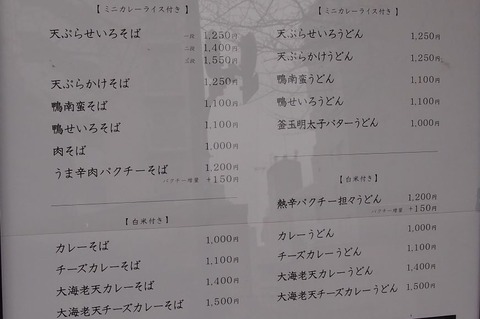 【ミニカレーライス付き】
天ぷらせいろそば 一段 1,250円
二段 1,400円
三段 1,550円
天ぷらかけそば 1,250円
鴨南蛮そば 1,100円
鴨せいろそば 1,100円
肉そば 1,000円
うま辛肉パクチーそば 1,200円
パクチー増量 +150円
【白米付き】
カレーそば 1,000円
チーズカレーそば 1,100円
大海老天カレーそば 1,400円
大海老天チーズカレーそば 1,500円
【ミニカレーライス付き】
天ぷらせいろうどん 1,250円
天ぷらかけうどん 1,250円
鴨南蛮うどん 1,100円
鴨せいろうどん 1,100円
釜玉明太子バターうどん 1,000円
【白米付き】
熱辛パクチー担々うどん 1,200円
パクチー増量 +150円
カレーうどん 1,000円
チーズカレーうどん 1,100円
大海老天カレーうどん 1,400円
大海老天チーズカレーうどん 1,500円